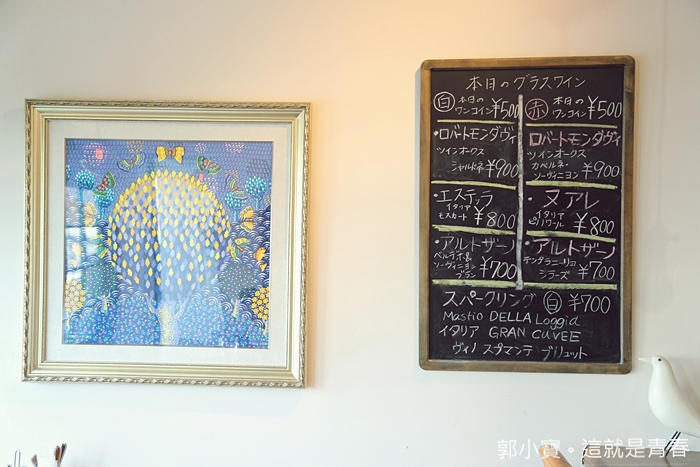 本日のグラスワイン
白 本日の ワンコイン ¥500
赤 本日の ワンコイン ¥500
・ロバートモンダヴィ
ツインオークス
シャルドネ ¥900
ロバートモンダヴィ
ツインオークス
カベルネ・
ソーヴィニヨン ¥900
・エステッラ
イタリア
モスカート ¥800
・ヌアル
イタリア
¥800
・アルトザーノ
ベルデホ&
ソーヴィニヨン
ブラン ¥700
・アルトザーノ
テンプラニーリョ
シラーズ ¥700
スパークリング 白 ¥700
Mastio DELLA Loggia
イタリア GRAN CUVEE
ヴィノ スプマンテ ブリュット
郭小寶。這就是青春